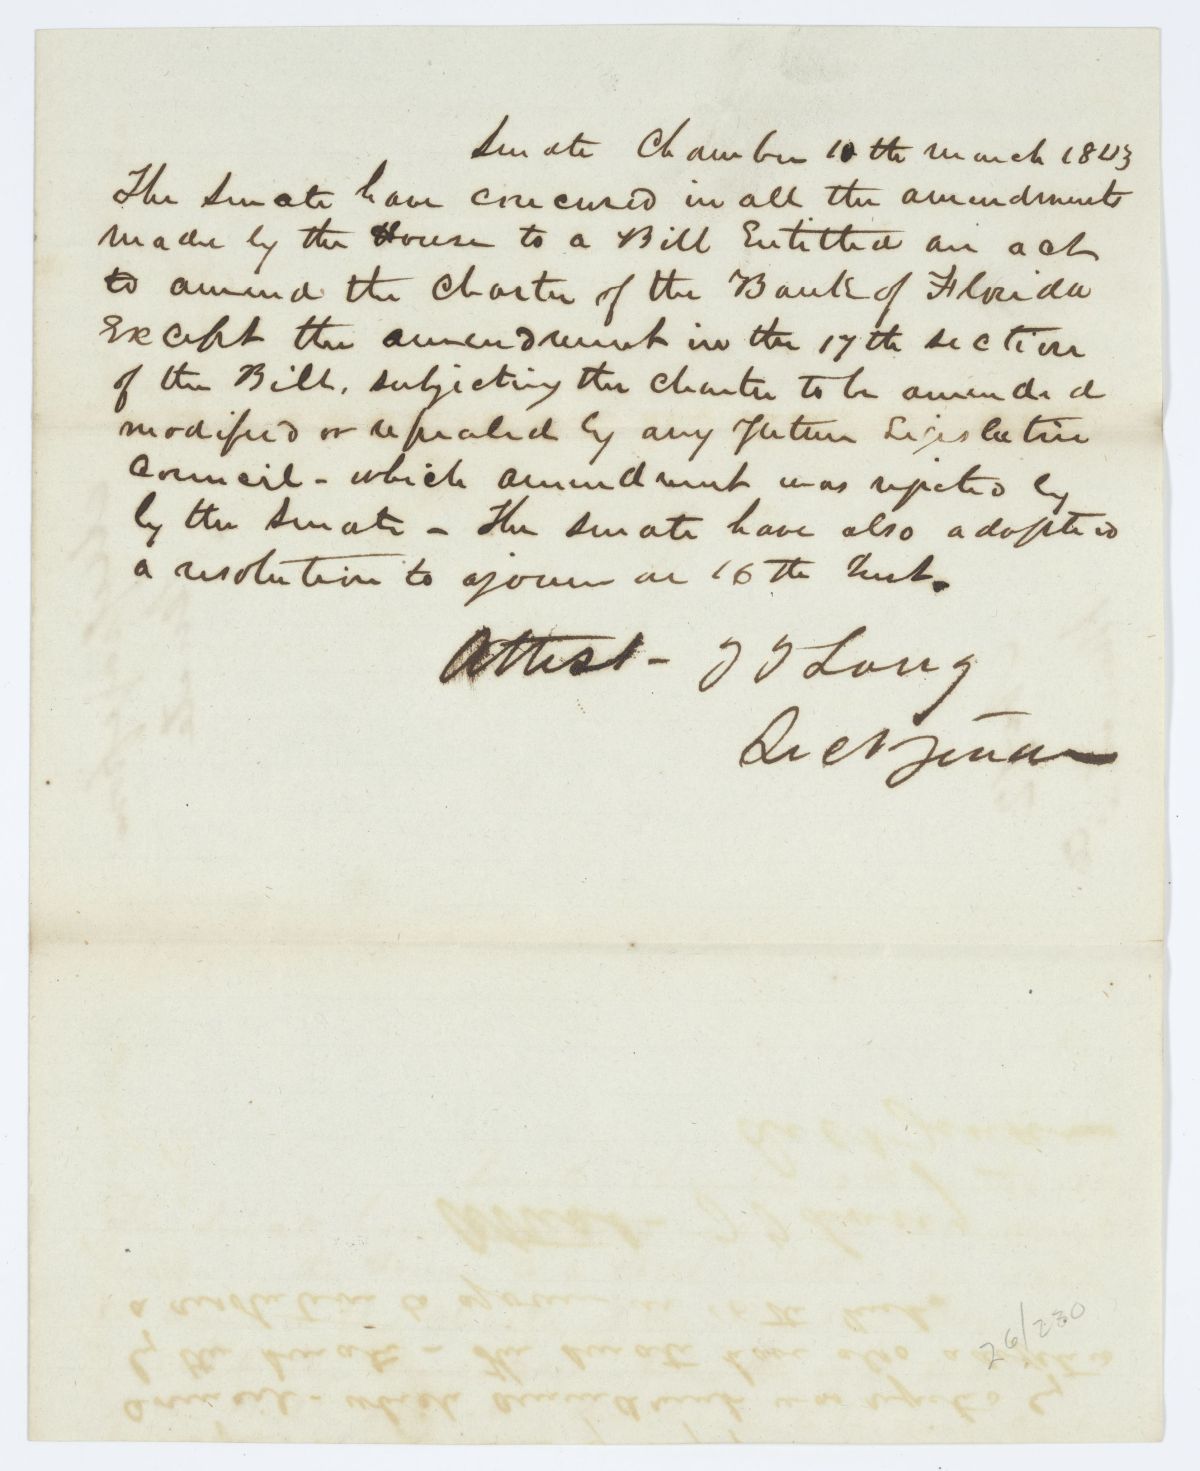 Senate Chamber 10th March 1843
The Senate have concured in all the amendments
made by the House to a Bill Entitled an act
to amend the Charter of the Bank of Florida
Except the amendment in the 17th section
of the Bill, subjecting the charter to be amended
modified or repealed by any future Legislative
Council - which amendment was rejected by
by the Senate - The Senate have also adopted
a resolution to ajourn on 16th Inst.
Attest - T T Long
Sect Senate
26/230